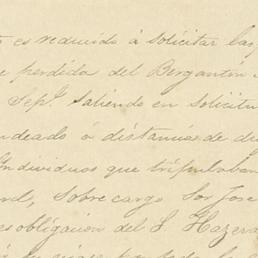 es reducido á solicitar las
e perdida del Bergantin
Sepe. Saliendo en Solicitu
ndeado a distancia de di
Individuos que tripulaban
Sobre cargo Sor Jose
es obligacion del S. Hazera